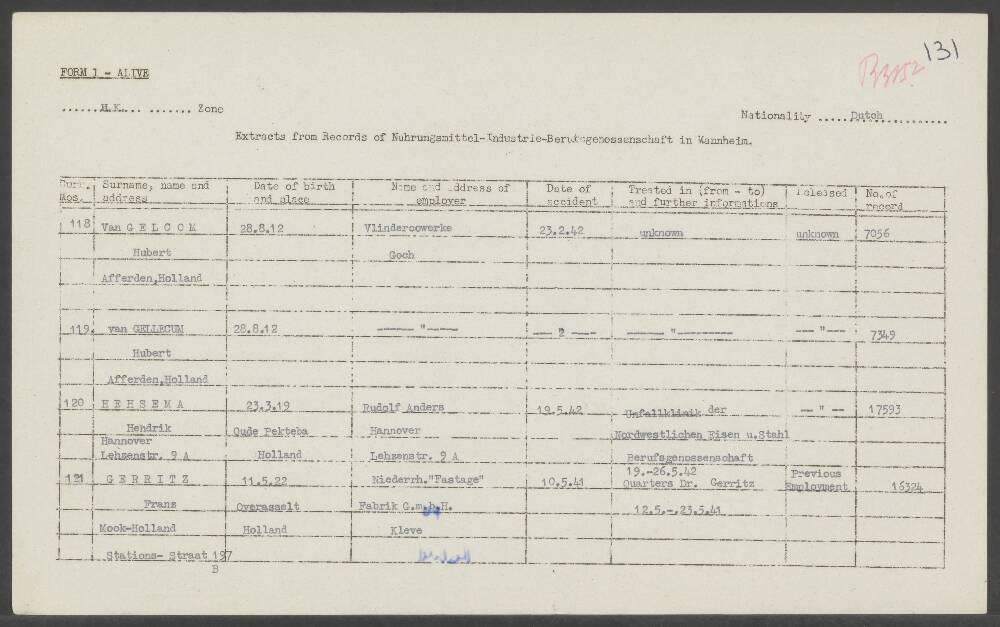 131
B3152
FORM 1 - ALIVE
...... H.K.... ....... Zone
Nationality ..... Dutch ............
Extracts from Records of Nahrungsmittel-Industrie-Berufsgenossenschaft in Mannheim.
Surname, name and address
Date of birth and place
Name and address of employer
Date of accident
Treated in (from - to) and further informations
released
No. of record
118 Van G E L C O M 28.8.12 Vlinderoowerke 23.2.42 unknown unknown 7056
Hubert Goch
Afferden, Holland
119. van GELLECUM 28.8.12 ----- " ----- --- " --- ----- " ------- --- " --- 7349
Hubert
Afferden, Holland
120 H E H S E M A 23.3.19 Rudolf Anders 19.5.42 Unfallklinik der --- " -- 17593
Hendrik Oude Pekteba Hannover Nordwestlichen Eisen u.Stahl
Hannover
Lehzenstr. 9 A Holland Lehzenstr. 9 A Berufsgenossenschaft
19.-26.5.42
121 G E R R I T Z 11.5.22 Niederrh."Fastage" 10.5.41 Quarters Dr. Gerritz Previous Employment 16324
Frans Overasselt Fabrik G.m.b.H. 12.5.-.23.5.41
Mook-Holland Holland Kleve
Stations- Straat 197
B